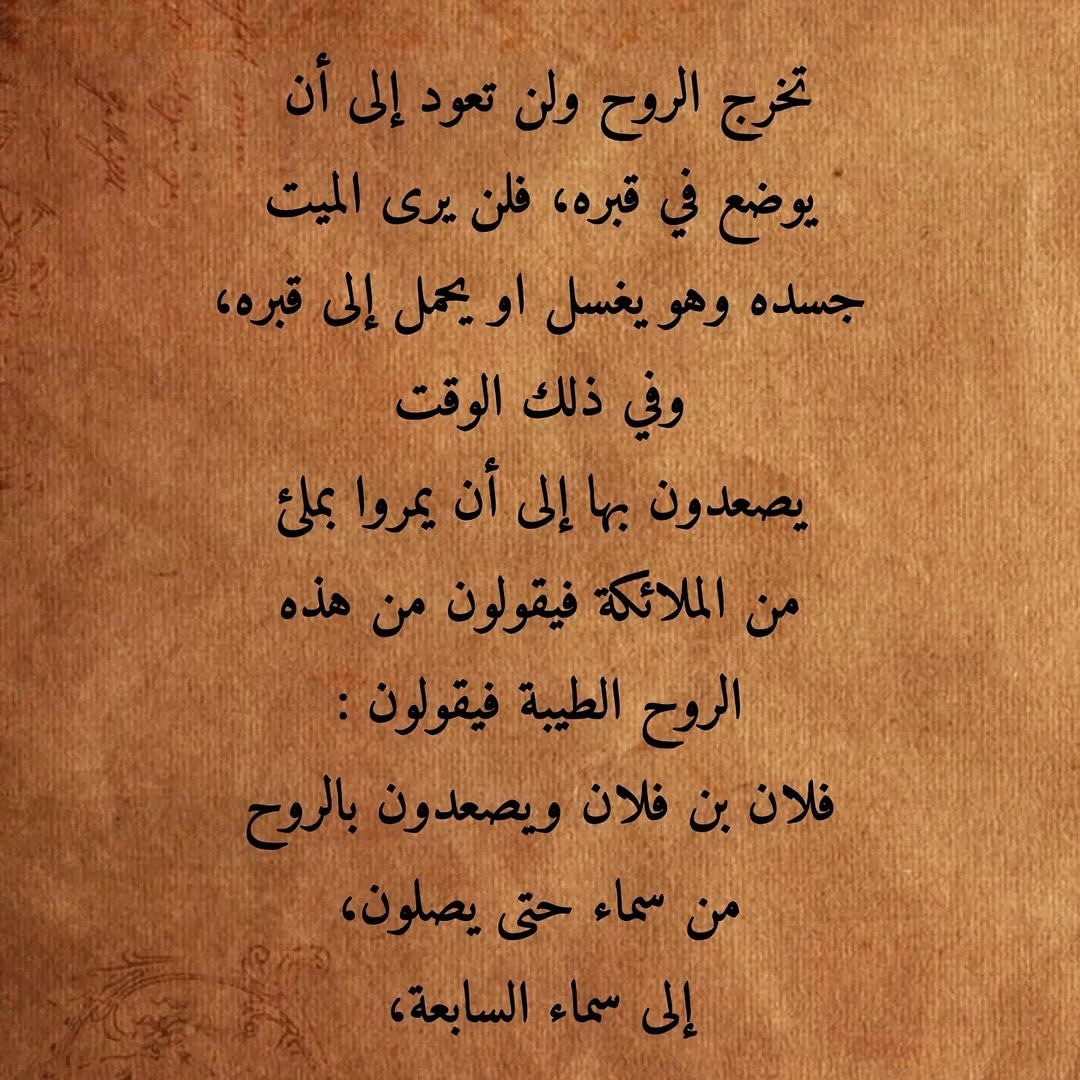 تخرج الروح ولن تعود إلى أن
يوضع في قبره، فلن يرى الميت
جسده وهو يغسل او يحمل إلى قبره،
وفي ذلك الوقت
يصعدون بها إلى أن يمروا بملئ
من الملائكة فيقولون من هذه
الروح الطيبة فيقولون :
فلان بن فلان ويصعدون بالروح
من سماء حتى يصلون،
إلى سماء السابعة،